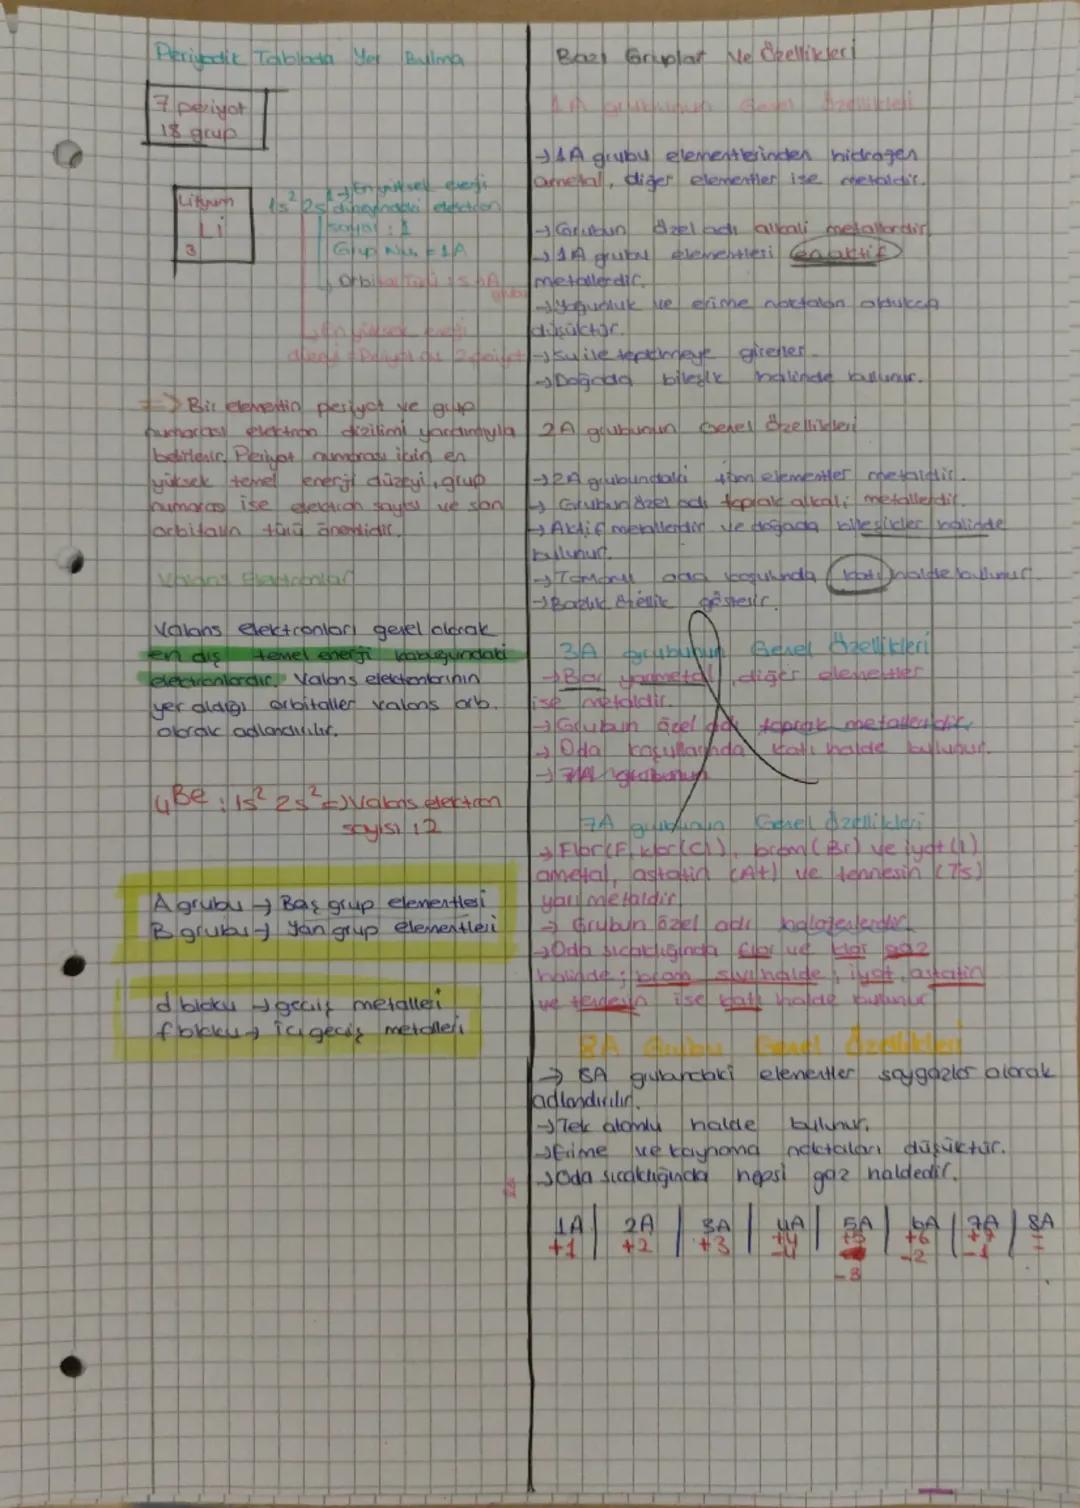 Periyodik Tabloda Yer Bulma
7 periyot
18 grup
Lityum
Li
3
1s² 2s¹ → En yüksek enerji
düzeyindeki elektron
sayısı : 1
Grup Nu. = 1A
Orbital Türü : s → A
grubu
En yüksek enerji
düzeyi = Periyot nu 2. periyot
=> Bir elementin periyot ve grup
numarası elektron dizilimi yardımıyla
belirlenir. Periyot numarası için en
yüksek temel enerji düzeyi, grup
numarası ise elektron sayısı ve son
orbitalin türü önemlidir.
Valans Elektronları
Valans elektronları genel olarak
en dış temel enerji kabuğundaki
elektronlardır. Valans elektonlarının
yer aldığı orbitaller valans orb.
olarak adlandırılır.
₄Be : 1s² 2s² => Valans elektron
sayısı : 2
A grubu → Baş grup elementleri
B grubu → Yan grup elementleri
d bloku → geçiş metalleri
f bloku → iç geçiş metalleri
Bazı Gruplar Ve Özellikleri
1A grubunun Genel Özellikleri
→ 1A grubu elementlerinden hidrojen
ametal, diğer elementler ise metaldir.
→ Grubun özel adı alkali metallerdir
→ 1A grubu elementleri en aktif
metallerdir.
→ Yoğunluk ve erime noktaları oldukça
düşüktür.
→ Su ile tepkimeye girerler.
→ Doğada bileşik halinde bulunur.
2A grubunun Genel Özellikleri
→ 2A grubundaki tüm elementler metaldir.
→ Grubun özel adı toprak alkali metallerdir.
→ Aktif metallerdir ve doğada bileşikler halinde
bulunur.
→ Tamamı oda koşulunda katı halde bulunur
→ Bazik özellik gösterir.
3A grubunun Genel Özellikleri
→ Bor yarımetal, diğer elementler
ise metaldir.
→ Grubun özel adı toprak metalleridir.
→ Oda koşullarında katı halde bulunur.
→ 7A grubunun
7A grubunun Genel Özellikleri
→ Flor(F, klor(Cl), brom(Br) ve iyot(I)
ametal, astatin (At) ve tennesin (Ts)
yarı metaldir
→ Grubun özel adı halojenlerdir
→ Oda sıcaklığında flor ve klor gaz
halinde; brom sıvı halde; iyot, astatin
ve tenesin ise katı halde bulunur
8A Grubu Genel Özellikleri
→ 8A grubundaki elementler soygazlar olarak
adlandırılır.
→ Tek atomlu halde bulunur.
→ Erime ve kaynama noktaları düşüktür.
→ Oda sıcaklığında hepsi gaz haldedir.
1A | 2A | 3A | 4A | 5A | 6A | 7A | 8A
+1 +2 +3 +4 +5 +6 +7 -
-4 -3 -2 -1 -